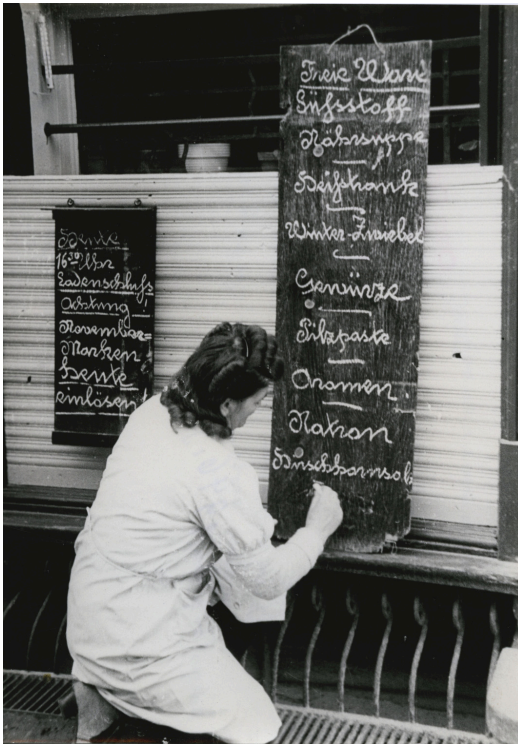 Heute
16³⁰ Uhr
Ladenschluss
Achtung!
November=
Marken
heute
einlösen!
Freie Ware
Süßstoff
Nährsuppe
Heißtrank
Winter-Zwiebel
Gewürze
Pilzpaste
Aromen
Natron
Hirschhornsalz